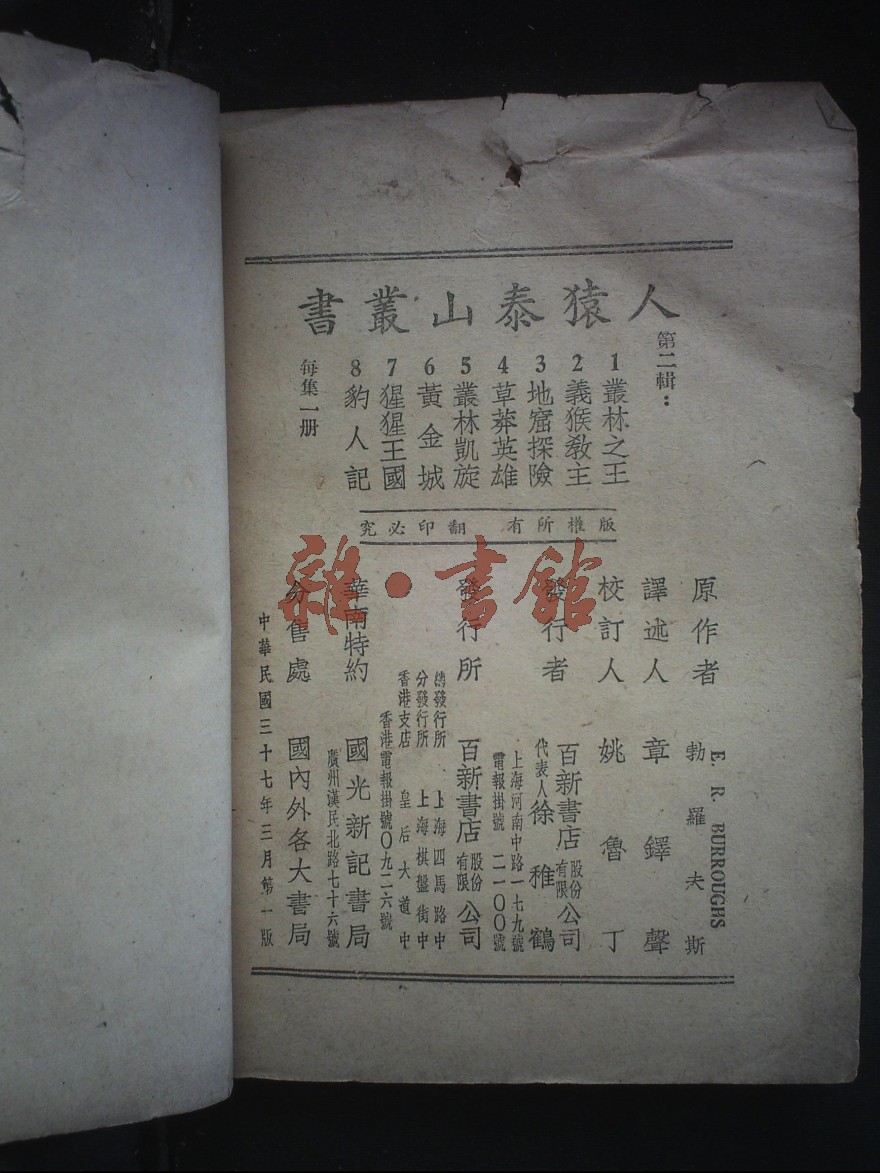 人猿泰山叢書
第二輯：
1 叢林之王
2 義猴教主
3 地窟探險
4 草莽英雄
5 叢林凱旋
6 黃金城
7 猩猩王國
8 豹人記
每集一册
版權所有 翻印必究
原作者 E. R. BURROUGHS 勃羅夫斯
譯述人 章鐸聲
校訂人 姚魯丁
發行者 百新書店股份有限公司
代表人徐稚鶴
上海河南中路一七九號
電報掛號 二一〇〇號
發行所 百新書店股份有限公司
總發行所 上海四馬路中
分發行所 上海棋盤街中
香港支店 皇后大道中
香港電報掛號〇九二六號
華南特約 國光新記書局
廣州漢民北路七十六號
分售處 國內外各大書局
中華民國三十七年三月第一版
雜·書館